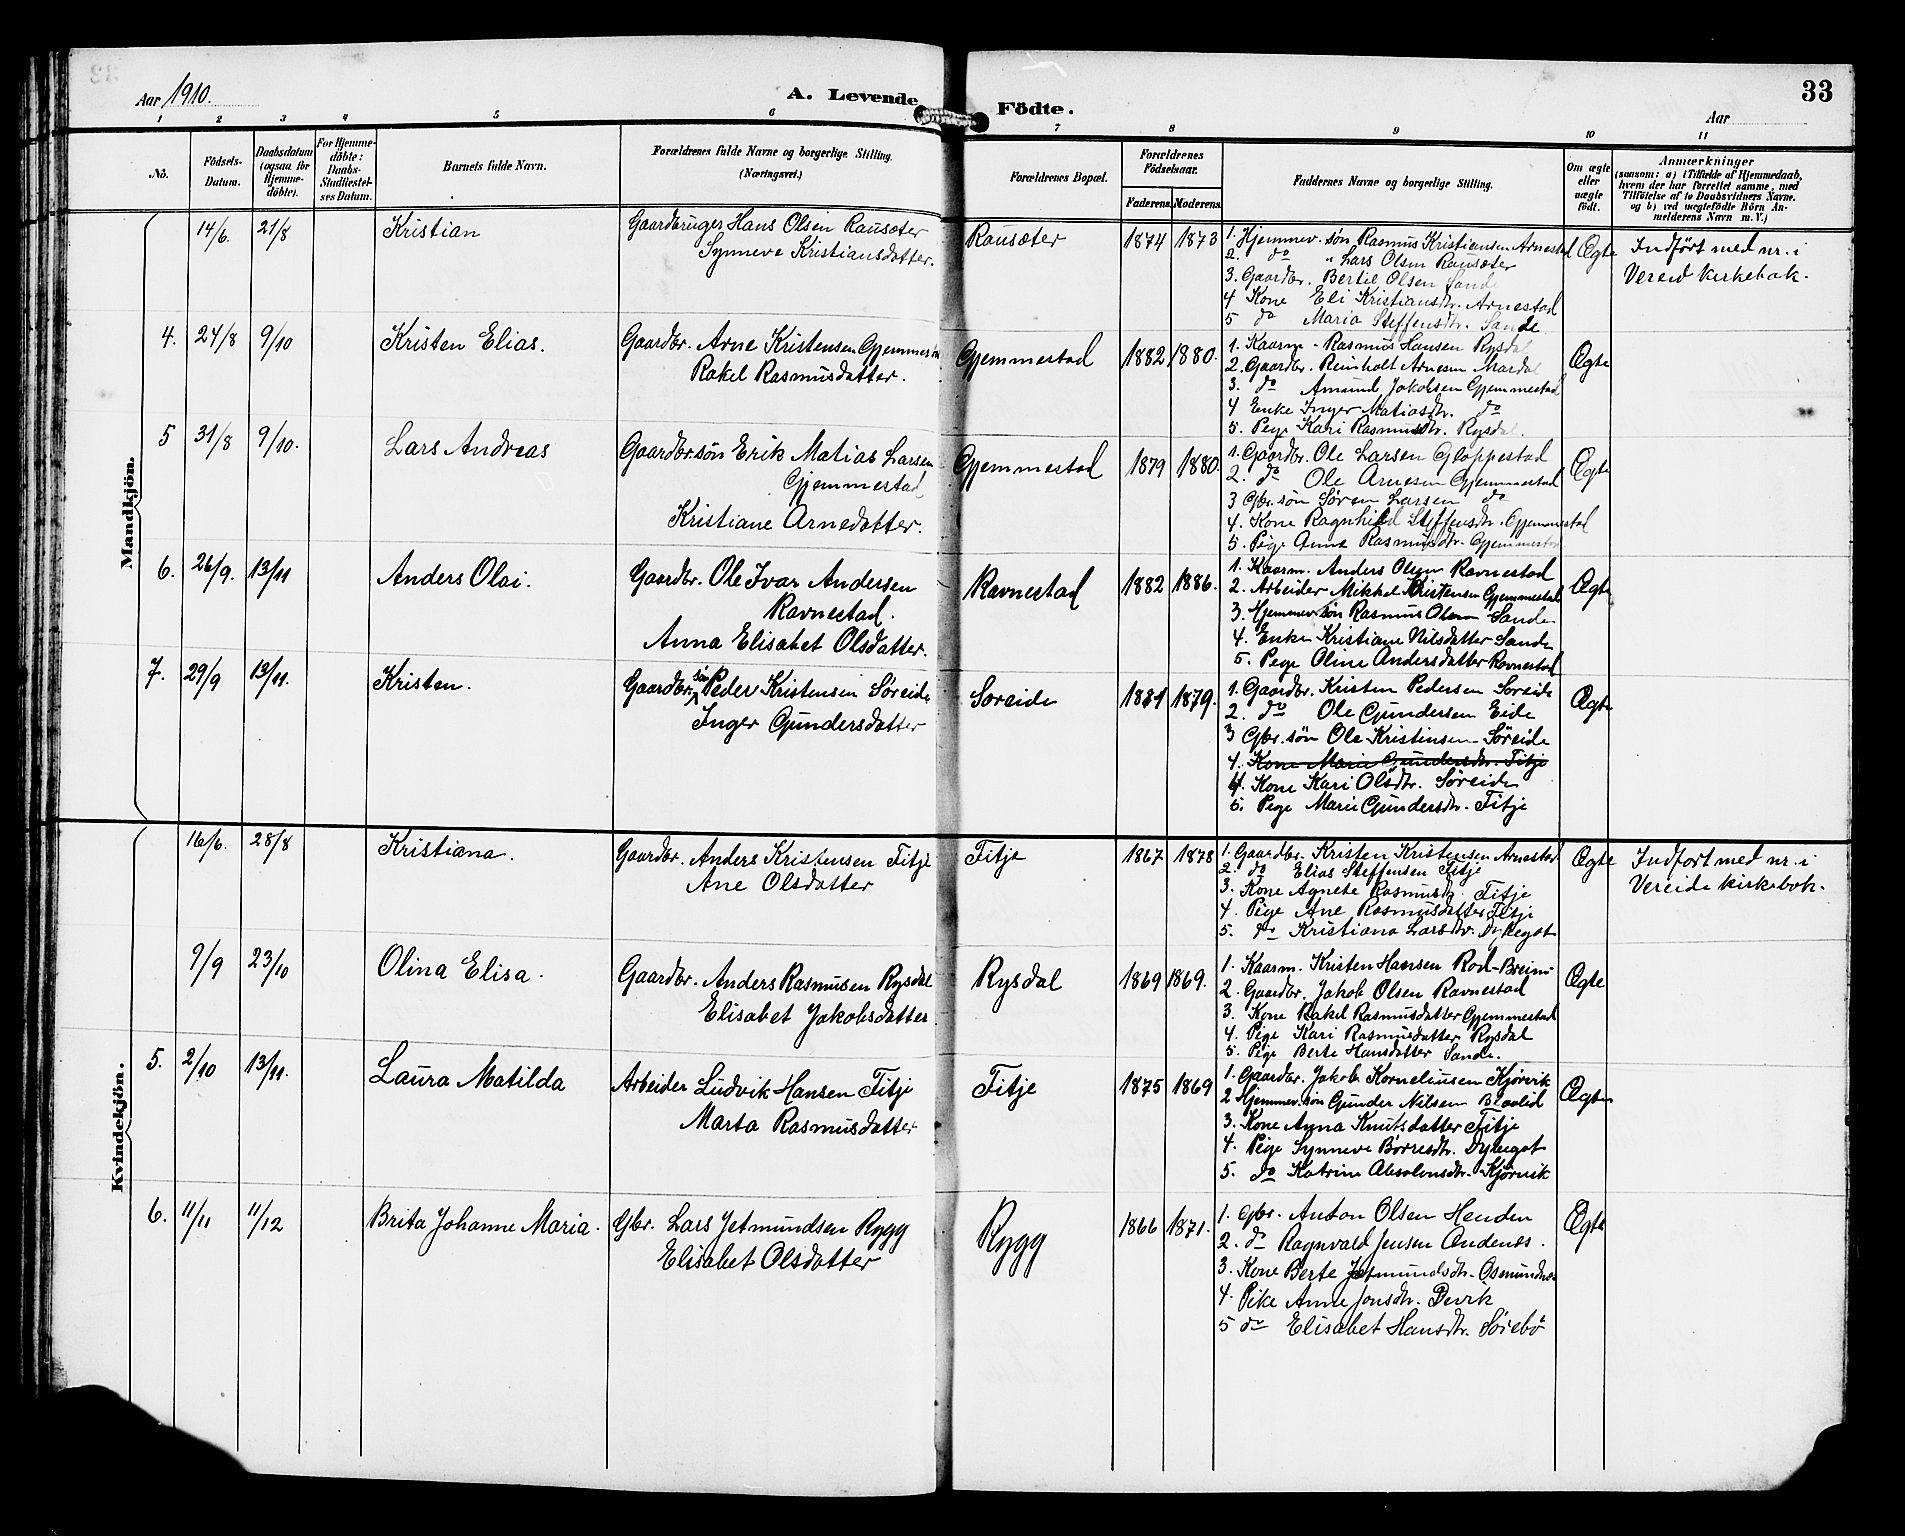 33
Aar 1910.
A. Levende Födte.
Aar
1 2 3 4 5 6 7 8 9 10 11
No.
Födsels-
Datum.
Daabsdatum
(ogsaa for
Hjemme-
döbte).
For Hjemme-
döbte:
Daabs-
Stadfæstel-
ses Datum.
Barnets fulde Navn.
Forældrenes fulde Navne og borgerlige Stilling.
(Næringsvei.)
Forældrenes Bopæl.
Forældrenes
Födselsaar.
Faderens. Moderens.
Faddernes Navne og borgerlige Stilling.
Om ægte
eller
uægte
födt.
Anmærkninger
(saasom: a) i Tilfælde af Hjemmedaab,
hvem der har forrettet samme, med
Tilföielse af to Daabsvidners Navne.
og b) ved uægtefödte Börn An-
melderens Navn m. V.)
Mandkjön.
14/6. 21/8 Kristian
Gaardbruger Hans Olsen Rausæter
Synneve Kristiansdatter.
Rausæter 1874 1873
1. Hjemmev. søn Rasmus Kristiansen Arnestad
2. do " Lars Olsen Rausæter
3. Gaardbr. Bertil Olsen Sande
4 Kone Eli Kristiansdtr. Arnestad
5 do Maria Steffensdtr. Sande
Ægte
Indført med nr. i
Vereid kirkebok.
4. 24/8 9/10 Kristen Elias.
Gaardbr. Arne Kristensen Gjemmestad
Rakel Rasmusdatter.
Gjemmestad 1882 1880.
1. Kaarm. Rasmus Hansen Rysdal
2. Gaardbr. Reinholt Arnesen Mardal
3. do Amund Jakobsen Gjemmestad
4 Enke Inger Matiasdtr. do
5. Pige Kari Rasmusdtr. Rysdal.
Ægte
5 31/8 9/10. Lars Andreas
Gaardbr.søn Erik Matias Larsen
Gjemmestad
Kristiane Arnedatter.
Gjemmestad 1879 1880.
1. Gaardbr. Ole Larsen Gloppestad
2. do Ole Arnesen Gjemmestad
3 Gbr. søn Søren Larsen do
4. Kone Ragnhild Steffensdtr. Gjemmestad
5. Pige Anna Rasmusdtr. Gjemmestad
Ægte
6. 26/9. 13/11 Anders Olai.
Gaardbr. Ole Ivar Andersen
Ravnestad.
Anna Elisabet Olsdatter.
Ravnestad 1882 1886.
1. Kaarm. Anders Olsen Ravnestad
2. Arbeider Mikkel Kristensen Gjemmestad
3. Hjemmev. søn Rasmus Olsen Sande
4. Enke Kristiane Nilsdatter Sande
5. Pige Oline Andersdatter Ravnestad
Ægte
7. 29/9 13/11. Kristen.
Gaardbr. søn Peder Kristensen Søreide
Inger Gundersdatter
Soreide 1881 1879.
1. Gaardbr. Kristen Pedersen Soreide
2. do Ole Gundersen Eide
3 Gbr. søn Ole Kristensen Søreide
4. Kone Marie Gundersdtr. Fitje
4. Kone Kari Olsdtr. Søreide
5. Pige Marie Gundersdtr. Fitje
Ægte
Kvindekjön.
16/6. 28/8 Kristiana.
Gaardbr. Anders Kristensen Fitje
Ane Olsdatter
Fitje 1867 1878
1. Gaardbr. Kristen Kristensen Arnestad
2. do Elias Steffensen Fitje
3. Kone Agnete Rasmusdtr. Fitje
4. Pige Ane Rasmusdatter Fitje
5. do Kristiana Larsdtr.
Ægte
Indført med nr. i
Vereide kirkebok.
9/9 23/10 Olina Elisa.
Gaardbr. Anders Rasmusen Rysdal
Elisabet Jakobsdatter.
Rysdal 1869 1869.
1. Kaarm. Kristen Hansen Rod-Breim
2. Gaardbr. Jakob Olsen Ravnestad
3. Kone Rakel Rasmusdatter Gjemmestad
4. Pige Kari Rasmusdatter Rysdal
5. Pige Berte Hansdatter Sande.
Ægte
5. 2/10 13/11. Laura Matilda
Arbeider Ludvik Hansen Fitje
Marta Rasmusdatter
Fitje 1875 1869
1. Gaardbr. Jakob Korneliusen Kjørvik
2 Hjemmev. søn Gunder Nilsen
3. Kone Anna Knutsdatter Fitje
4. Pige Synneve Børresdtr.
5. do Katrine Absalonsdtr. Kjørvik
Ægte
6. 11/11 11/12 Brita Johanne Maria.
Gbr. Lars Jetmundsen Rygg
Elisabet Olsdatter
Rygg 1866 1871.
1. Gbr. Anton Olsen Henden
2. do Ragnvald Jensen Andenæs.
3. Kone Berte Jetmundsdtr. Osmundnes
4. Pike Anne Jonsdtr. Devik
5 do Elisabet Hansdtr. Sørebø
Ægte